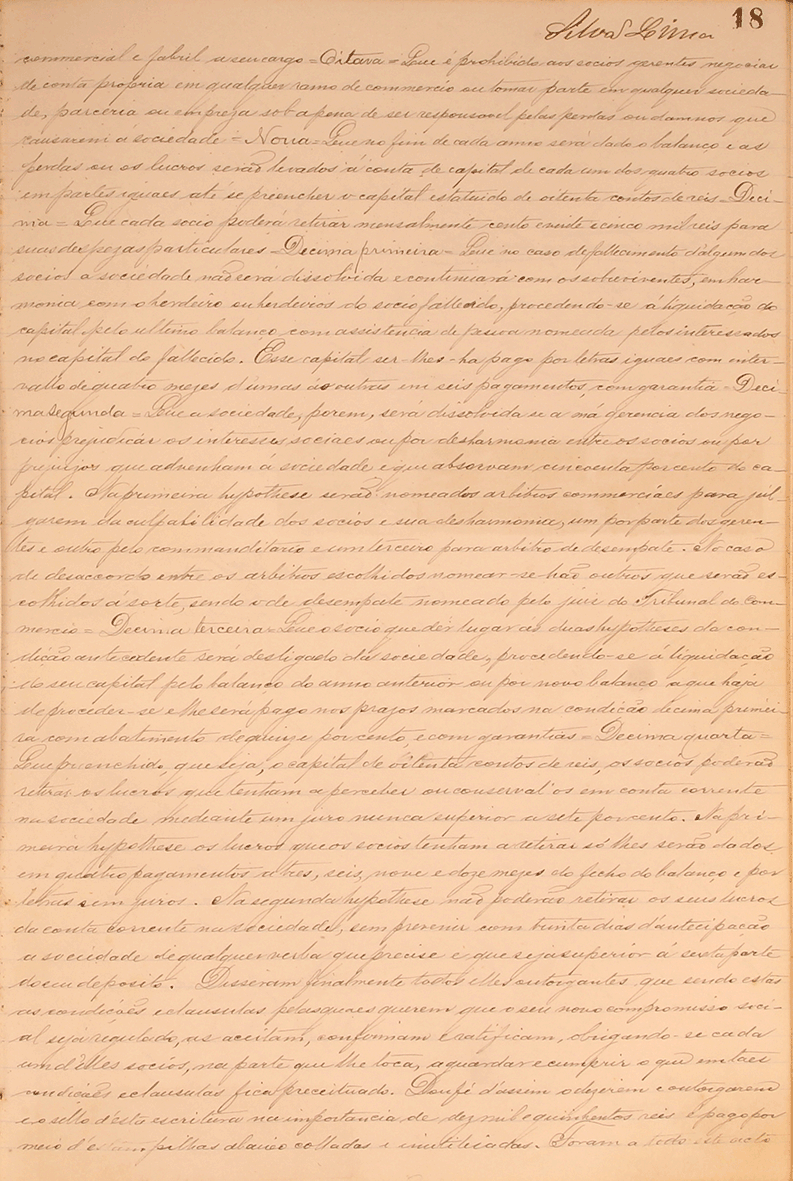 Silva Lima 18
commercial e fabril a seu cargo = Oitava = Que é prohibido aos socios gerentes negociar
de conta propria em qualquer ramo de commercio ou tomar parte em qualquer socieda-
de, parceria ou empreza sob a pena de ser responsavel pelas perdas ou damnos que
causarem á sociedade = Nona = Que no fim de cada anno será dado o balanço e as
perdas ou os lucros serão levados á conta de capital de cada um dos quatro socios
em partes iguaes até se preencher o capital estatuido de oitenta contos de reis = Deci-
ma = Que cada socio poderá retirar mensalmente cento e vinte e cinco mil reis para
suas despezas particulares Decima primeira = Que no caso de fallecimento d'algum dos
socios a sociedade não será dissolvida e continuará com os sobreviventes, em har-
monia com o herdeiro ou herdeiros do socio fallecido, procedendo-se á liquidação do
capital pelo ultimo balanço com assistencia de pessoa nomeada pelos interessados
no capital do fallecido. Esse capital ser-lhes-ha pago por letras iguaes com inter-
vallo de quatro mezes d'umas ás outras em seis pagamentos, com garantia = Deci-
ma segunda = Que a sociedade, porem, será dissolvida se a má gerencia dos nego-
cios prejudicar os interesses sociaes ou por desharmonia entre os socios ou por
prejuizos que advenham á sociedade e que absorvam cincoenta por cento do ca-
pital. Na primeira hypothese serão nomeados arbitros commerciaes para jul-
garem da culpabilidade dos socios e sua desharmonia, um por parte dos geren-
tes e outro pelo commanditario e um terceiro para arbitro de desempate. No caso
de desaccordo entre os arbitros escolhidos nomear-se-hão outros que serão es-
colhidos á sorte, sendo o de desempate nomeado pelo juiz do Tribunal do Com-
mercio = Decima terceira = Que o socio que dér lugar ás duas hypotheses da con-
dição antecedente será desligado da sociedade, procedendo-se á liquidação
do seu capital pelo balanço do anno anterior ou por novo balanço a que haja
de proceder-se e lhe será pago nos prazos marcados na condição decima primei-
ra com abatimento de quinze por cento, e com garantias = Decima quarta =
Que preenchido, que seja, o capital de oitenta contos de reis, os socios poderão
retirar os lucros que tenham a perceber ou conserval'os em conta corrente
na sociedade mediante um juro nunca superior a sete por cento. Na pri-
meira hypothese os lucros que os socios tenham a retirar só lhes serão dados
em quatro pagamentos a tres, seis, nove e doze mezes do fecho do balanço e por
letras sem juros. Na segunda hypothese não poderão retirar os seus lucros
da conta corrente na sociedade, sem prevenir com trinta dias d'antecipação
a sociedade de qualquer verba que precise e que seja superior á sexta parte
do seu deposito. Disseram finalmente todos elles outorgantes que sendo estas
as condições e clausulas pelas quaes querem que o seu novo compromisso soci-
al seja regulado, as aceitam, confirmam e ratificam, obrigando-se cada
um d'elles socios, na parte que lhe toca, a guardar e cumprir o que em taes
condições e clausulas fica preceituado. Dou fé d'assim o dizerem e outorgarem
e o sello d'esta escritura na importancia de dez mil e quinhentos reis é pago por
meio d'estampilhas abaixo colladas e inutilisadas. Foram a todo este acto